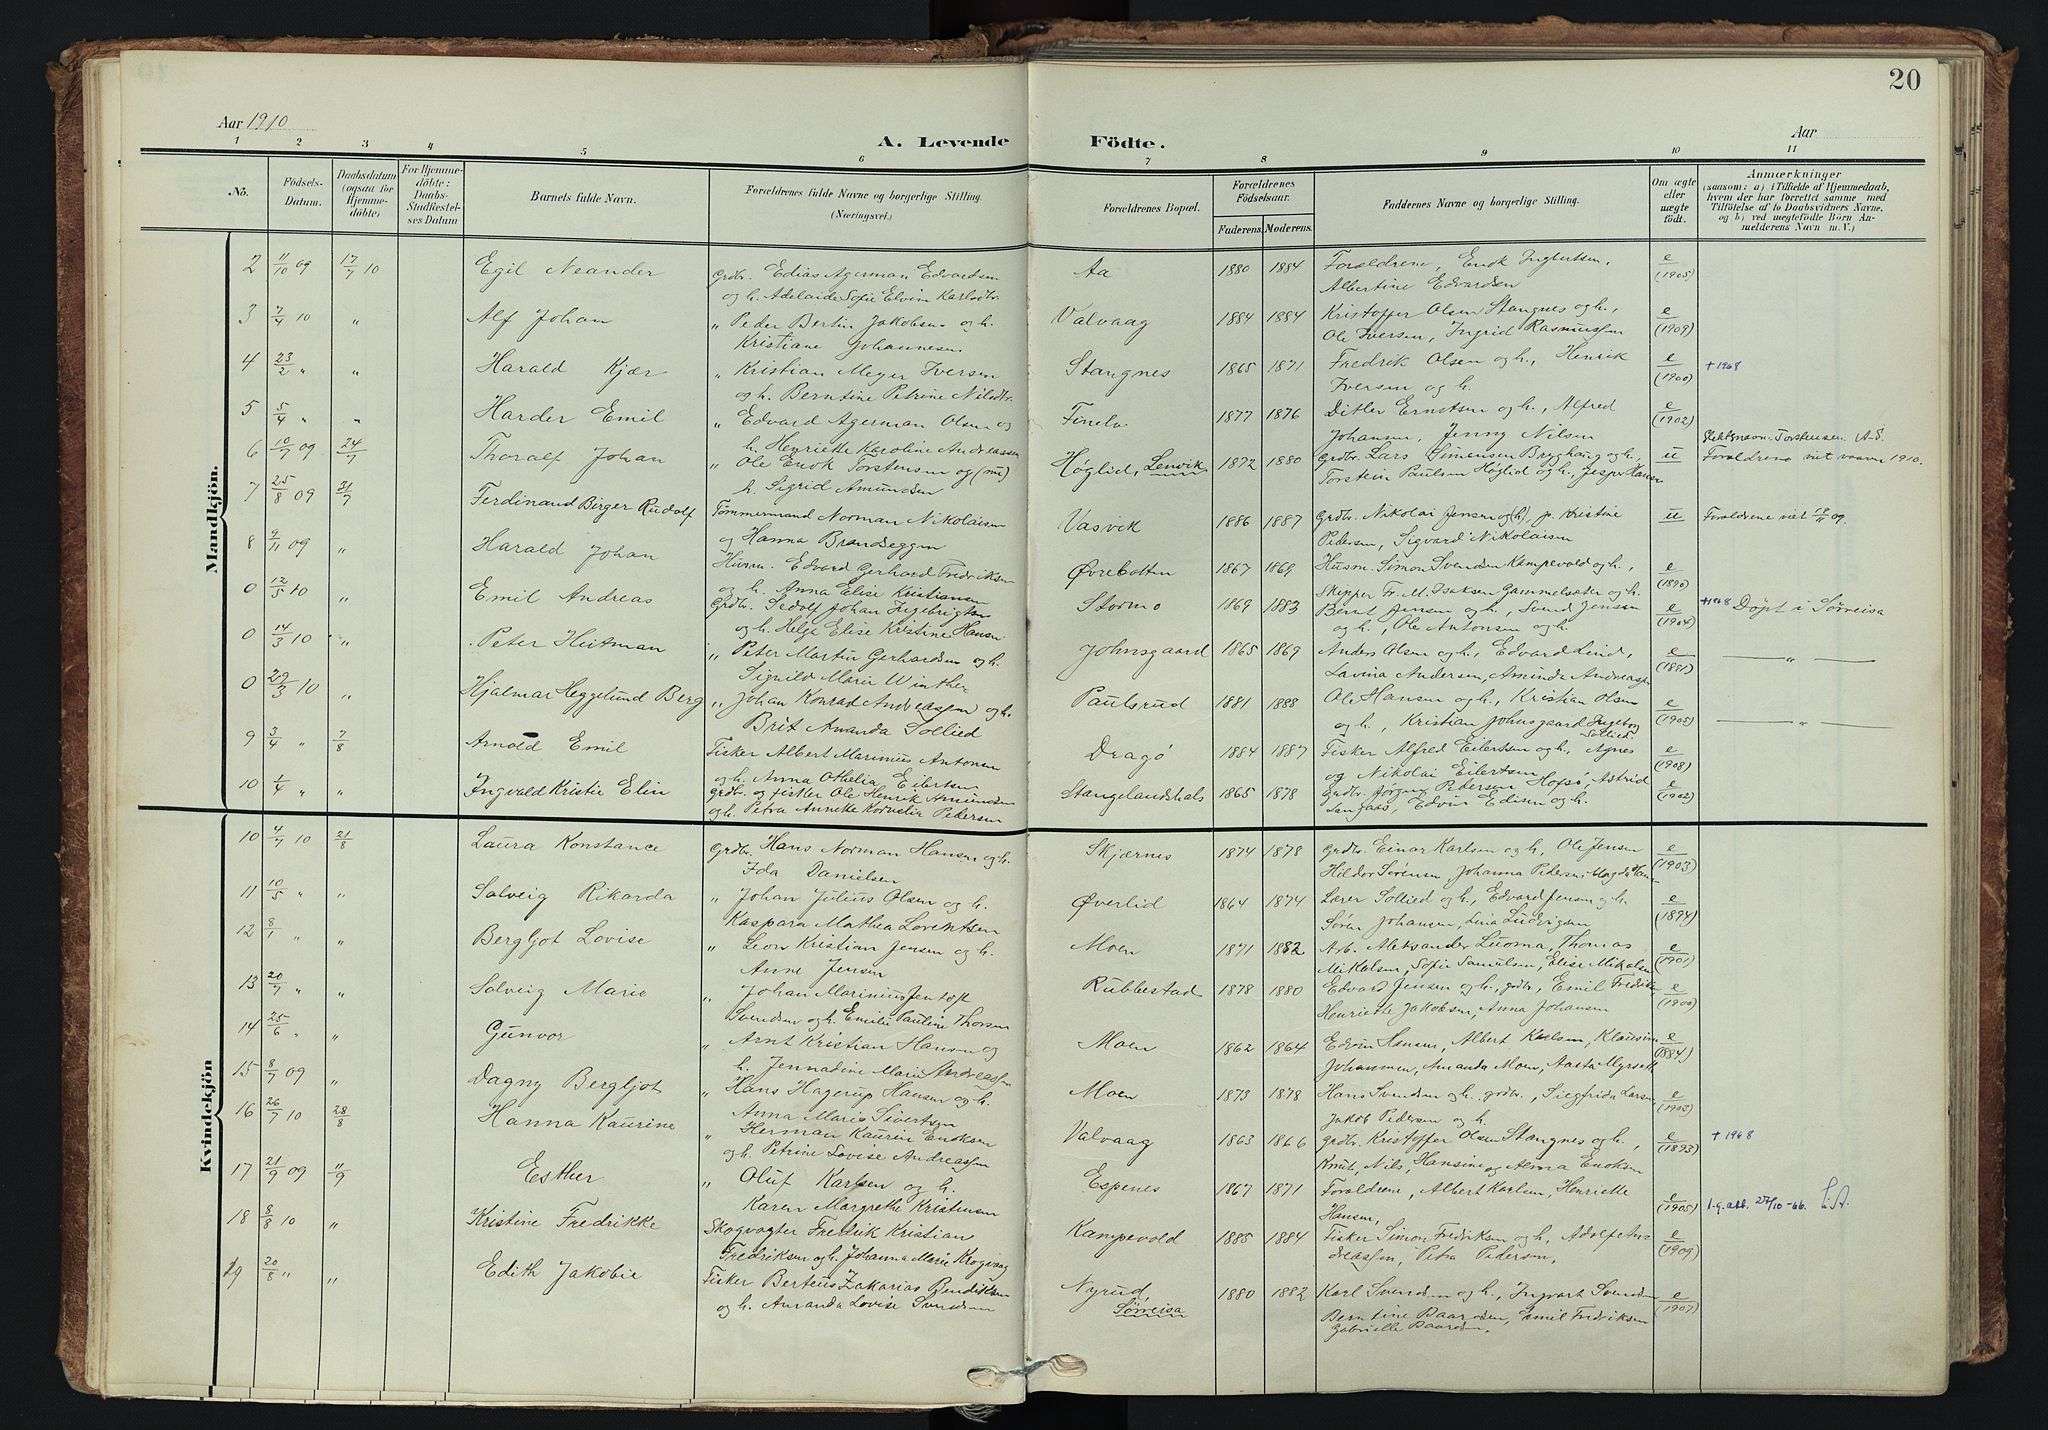 20
Aar 1910
A. Levende Födte.
Aar
1 2 3 4 5 6 7 8 9 10 11
No. Födsels-Datum. Daabsdatum (ogsaa for Hjemme-döbte) For Hjemme-döbte: Daabs-Stadfæstelses Datum Barnets fulde Navn. Forældrenes fulde Navne og borgerlige Stilling. (Næringsvei.) Forældrenes Bopæl. Forældrenes Födselsaar. Faderens. Moderens. Faddernes Navne og borgerlige Stilling. Om ægte eller uægte födt. Anmærkninger (saasom: a) i Tilfælde af Hjemmedaab, hvem der har forrettet samme med Tilföielse af to Daabsvidners Navne, og b) ved uegtefødte Börn Anmelderens Navn m. V.)
Mandkjön.
2 11/10 09 17/7 10 Egil Neander Grdbr. Edias Agerman Edvardsen Aa 1880 1884 Forældrene, Enok Ingbertsen, e
og h. Adelaide Sofie Elvine Karlsdtr. Albertine Edvardsen (1905)
3 7/4 10 " Alf Johan " Peder Bertin Jakobsen og h. Valvaag 1884 1884 Kristoffer Olsen Stangnes og h., e
Kristiane Johannesen Ole Iversen, Ingrid Rasmussen (1909)
4 23/2 " " Harald Kjær " Kristian Meyer Iversen Stangnes 1865 1871 Fredrik Olsen og h., Henrik e + 1968
og h. Berntine Petrine Nilsdtr. Iversen og h. (1900)
5 5/4 " " Harder Emil " Edvard Agerman Olsen og 1877 1876 Ditlev Ernstsen og h., Alfred e
h. Henriette Karoline Andreassen Johansen, Jenny Nilsen (1902) Slektsnavn: Torstensen. A.S.
6 10/7 09 24/7 Thoralf Johan " Ole Enok Torstensen og (nu) Høglid, Lenvik 1872 1880 Grdbr. Lars Simensen Bryghaug og h., u Forældrene viet 1910.
h. Sigrid Amundsen Torstein Paulsen Høglid og h., Jesper Hansen
7 25/8 09 31/7 Ferdinand Birger Rudolf Tømmermand Norman Nikolaisen Vasvik 1886 1887 Grdbr. Nikolai Jensen og (h), p. Kristine u Forældrene viet 09.
og Hanna Brandeggen Pedersen, Sigvard Nikolaisen
8 9/11 09 " Harald Johan Husm. Edvard Gerhard Fredriksen Øvrebotten 1867 1869 Husm. Simon Svendsen Kampevold og h., e
og h. Anna Elise Kristiansen Skipper Fr. M. Isaksen Gammelsæter og h. (1890)
0 12/5 10 " Emil Andreas Grdbr. Sedolf Johan Ingebrigtsen Stormo 1869 1883 Bernt Jensen og h., Svend Jensen e +1968 Døpt i Sørreisa
og h. Helga Elise Kristine Hansen og h., Ole Antonsen og h. (1904)
0 14/3 10 " Peter Heitman " Peter Martin Gerhardsen og h. Johnsgaard 1865 1869 Anders Olsen og h., Edvard Lind, e — " —
Signild Marie Winther Lavina Andersen, Aminda Andreassen (1891)
0 29/3 10 " Hjalmar Heggelund Berg " Johan Konrad Andreassen og h. Paulsrud 1881 1888 Ole Hansen og h., Kristian Olsen e — " —
Brit Amanda Sollied og h., Kristian Johnsgaard, Ingeborg Sollied. (1905)
9 3/4 " 7/8 Arnold Emil Fisker Albert Marinius Antonsen Dragø 1884 1887 Fisker Alfred Eilertsen og h., Agnes e
og h. Anna Othelia Eilertsen og Nikolai Eilertsen (1908)
10 1/4 " " Ingvald Kristie Elin Grdbr. og fisker Ole Henrik Amundsen Stangelandshals 1865 1878 Grdbr. Jørgen Pedersen Hofsø, Astrid e
og h. Petra Annette Kornelie Pedersen Langaas, Edvin Edisen og h. (1902)
Kvindekjön
10 4/7 10 21/8 Laura Konstance Grdbr. Hans Norman Hansen og h. Skjærnes 1874 1878 Grdbr. Einar Karlsen og h., Ole Jensen e
Ida Danielsen Hilder Sørensen, Johanna Pedersen, Magda (1903)
11 10/5 " " Solveig Rikarda " Johan Julius Olsen og h. Øverlid 1864 1874 Lærer Sollied og h., Edvard Jensen og h. e
Kaspara Mathea Lorentsen Søren Johansen, Lina Ludvigsen (1894)
12 8/1 " " Bergljot Lovise " Leon Kristian Jensen og h. Moen 1871 1882 Arb. Aleksander Luoma, Thomas e
Anne Jensen Mikalsen, Sofie Samuelsen, Elise Mikalsen (1901)
13 20/7 " " Solveig Marie " Johan Marinius Jentoft Rubbestad 1878 1880 Edvard Jensen og h., grdbr., Emil Fredriksen e
Svendsen og h. Emilie Pauline Thorsen Henriette Jakobsen, Anna Johansen (1900)
14 25/6 " " Gunvor " Arnt Kristian Hansen og Moen 1862 1864 Edvin Hansen, Albert Karlsen, Klausine e
h. Jennadine Marie Andreassen Johannesen, Amanda Moen, Aasta Myrseth (1884)
15 8/7 09 " Dagny Bergljot " Hans Hagerup Hansen og h. Moen 1873 1878 Hans Svendsen og h., grdbr., Siegfrida Larsen e
Anna Marie Sivertsen Jakob Pedersen og h. (1903)
16 26/7 10 28/8 Hanna Kaurine " Herman Kaurin Enoksen Valvaag 1863 1866 Grdbr. Kristoffer Olsen Stangnes og h., e + 1968
og h. Petrine Lovise Andreassen Knut, Nils, Hansine og Alma Enoksen (1893)
17 21/9 09 11/9 Esther " Oluf Karlsen og h. Espenes 1867 1871 Forældrene, Albert Karlsen, Henriette e
Karen Margrethe Kristensen Hansen, (1905) 27/10-66.
18 8/8 10 " Kristine Fredrikke Skogvogter Fredrik Kristian Kampevold 1885 1884 Fisker Simon Fredriksen og h., Adolf An- e
Fredriksen og h. Johanna Marie Krogvaag dreassen, Petra Pedersen, (1909)
19 20/8 " " Edith Jakobie Fisker Berteus Zakarias Bendiksen Nyrud, Sørreisa 1880 1882 Karl Svendsen og h., Ingvart Svendsen e
og h. Amanda Lovise Svendsen Berntine Baardsen, Emil Fredriksen (1907)
Gabrielle Baardsen.